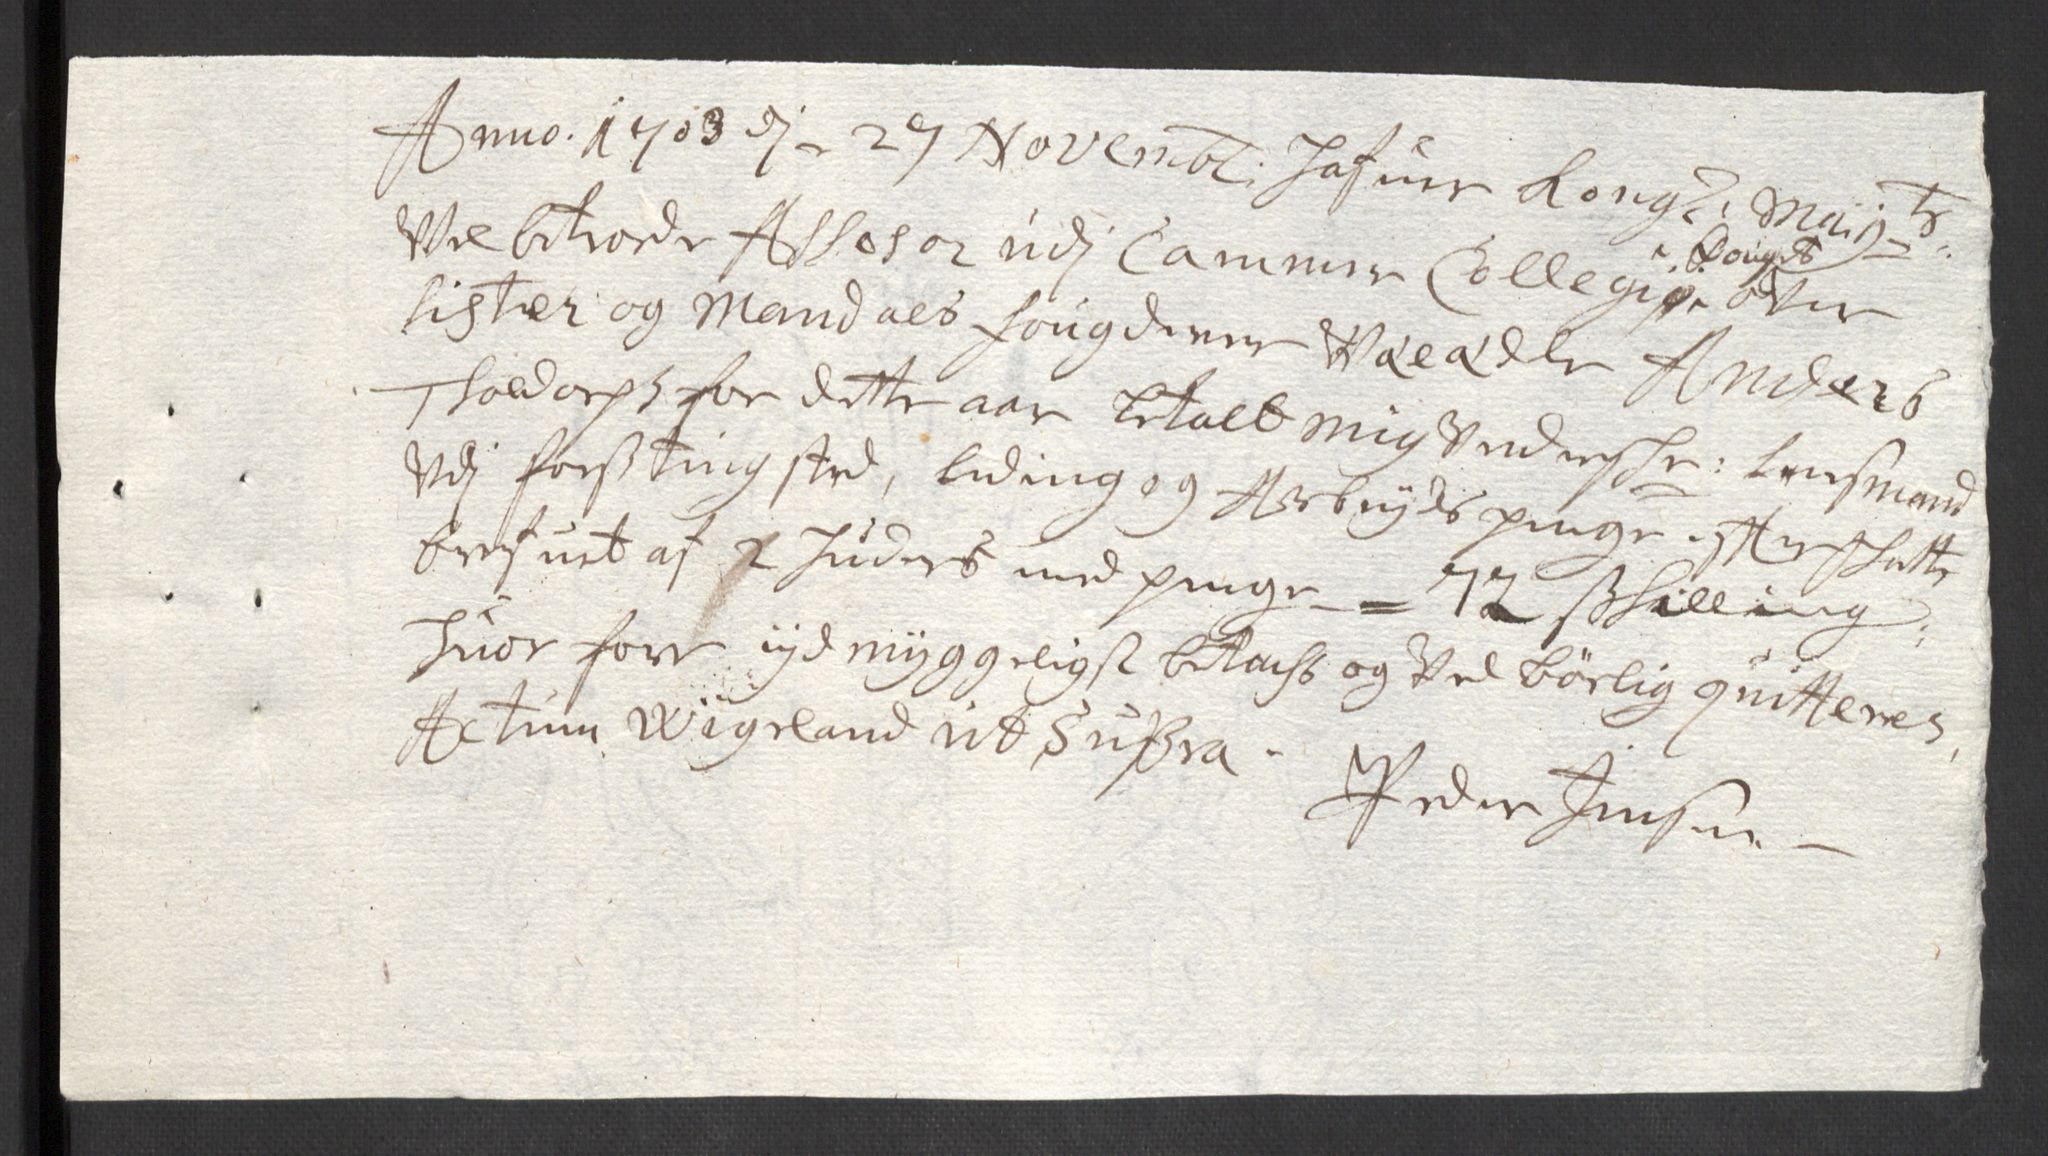 Anno. 1703 dj 27 Novembr: Hafuer Kongl: Maijts:
Velbetrode Assesor udj Cammer Collegij, Fougdt over
Lister og Mandals Fougderier Vel Edle Anders
Tholdorph for dette aar betalt mig underschr: Lensmand
Vdj tingsted, Leding og Arbeyds penge, Aarschatt
berefuet af 2 huders med penge = 72 schilling,
huor forre ijdmyggeligst betachs og ved børlig quitteres,
Actum Wigeland ut Supra.
Peder Jensen